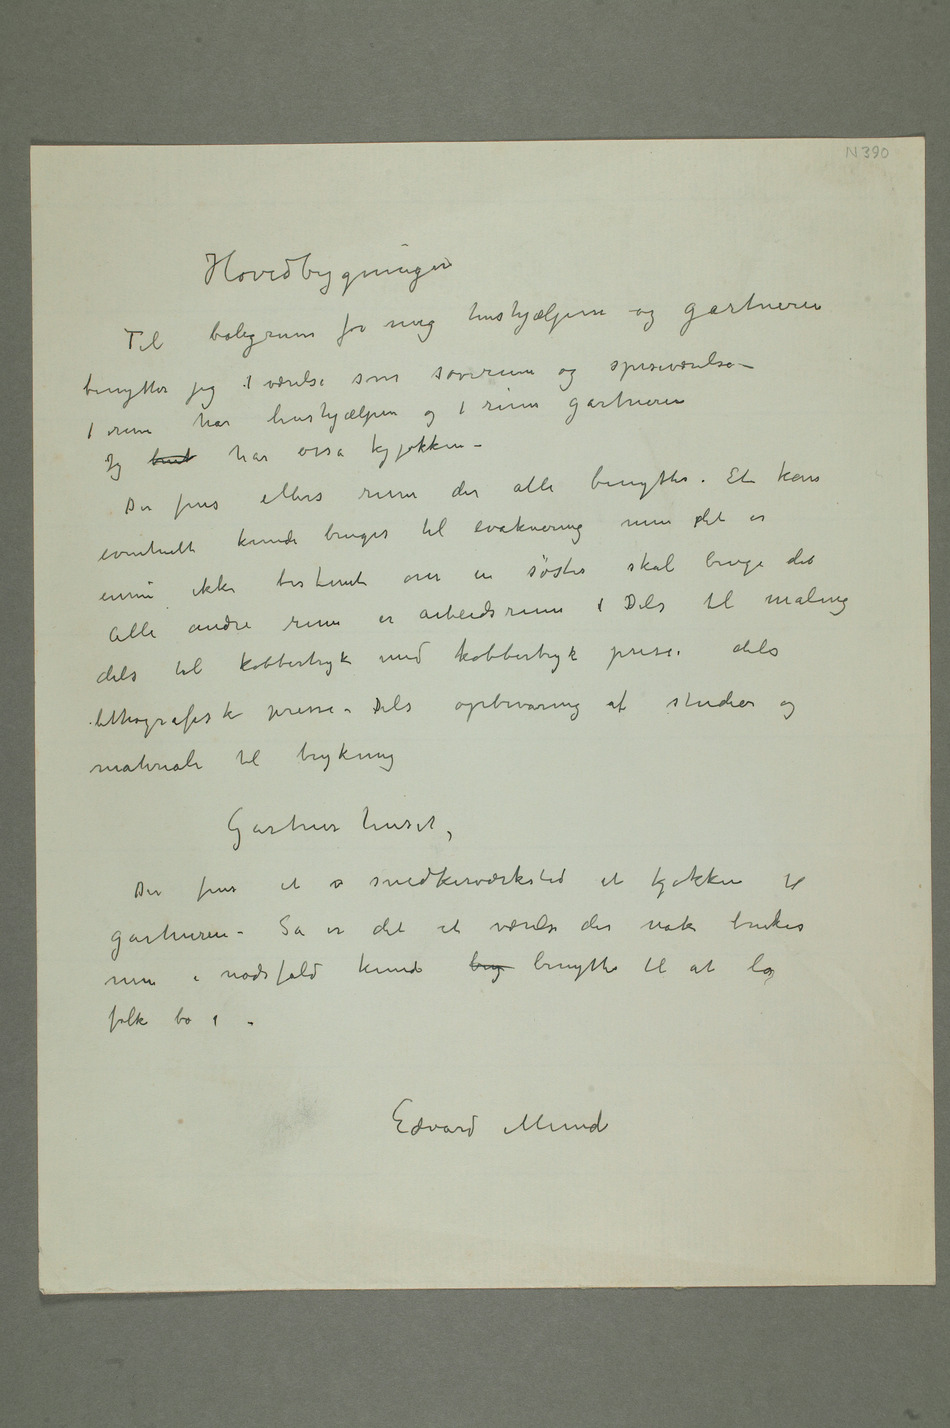 N 390
Hovedbygningen
Til boligrum for mig hushjælpen og gartneren
benytter jeg 1 værelse som soverum og spiseværelse –
1 rum har hushjælpen og 1 rum gartneren
Jeg bent har også kjøkken –
Der fins ellers rum der alle benyttes. Et kan
eventuelt kunde bruges til evakuering men det er
ennu ikke bestemt om en søster skal bruge det
Alle andre rum er arbeidsrum i Dels til maling
dels til kobbertryk med kobbertryk presse. dels
lithografisk presse – Dels opbevaring af studier og
materiale til trykning
Gartner huset,
Der fins et s snedkerværksted et kjøkken til
gartneren – Så er det et værelse der nok brukes
men i nødsfald kunde bey benyttes til at la
folk bo i –
Edvard Munch